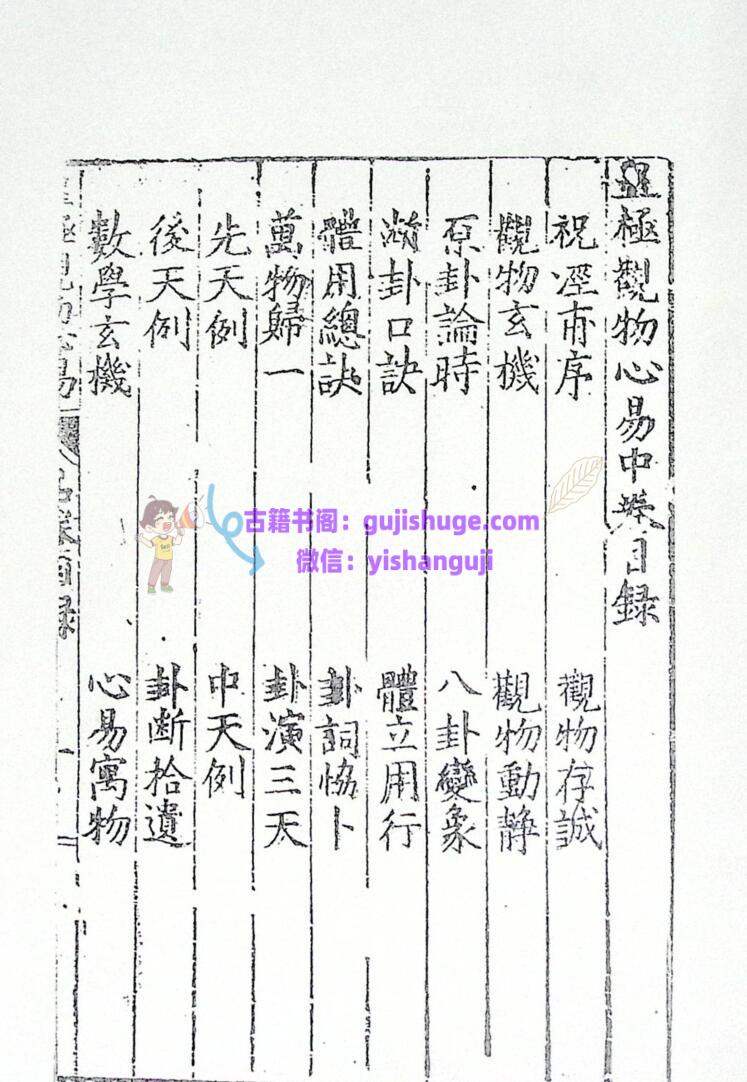 皇極觀物心易中卷目録
祝泾甫序 觀物存誠
觀物玄機 觀物動靜
原卦論時 八卦變象
卦口訣 體立用行
體用總訣 卦詞恊卜
萬物歸一 卦演三天
先天例 中天例
後天例 卦断拾遺
數學玄機 心易寓物
古籍书阁：gujishuge.com
微信：yishanguji